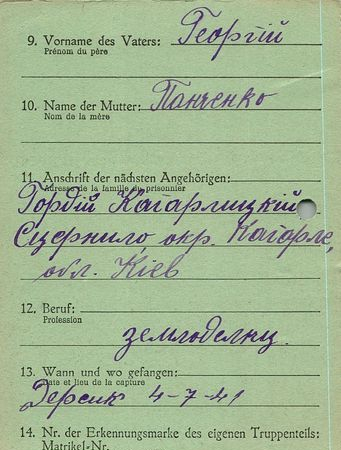 9. Vorname des Vaters: Георгій
Prénom du père
10. Name der Mutter: Панченко
Nom de la mère
11. Anschrift der nächsten Angehörigen:
Adresse de la famille du prisonnier
Гордій Кагарлицкій
окр. Кагарле,
обл. Кіев
12. Beruf:
Profession
земледелец
13. Wann und wo gefangen:
Date et lieu de la capture
4-7-41
14. Nr. der Erkennungsmarke des eigenen Truppenteils:
Matrikel-Nr.